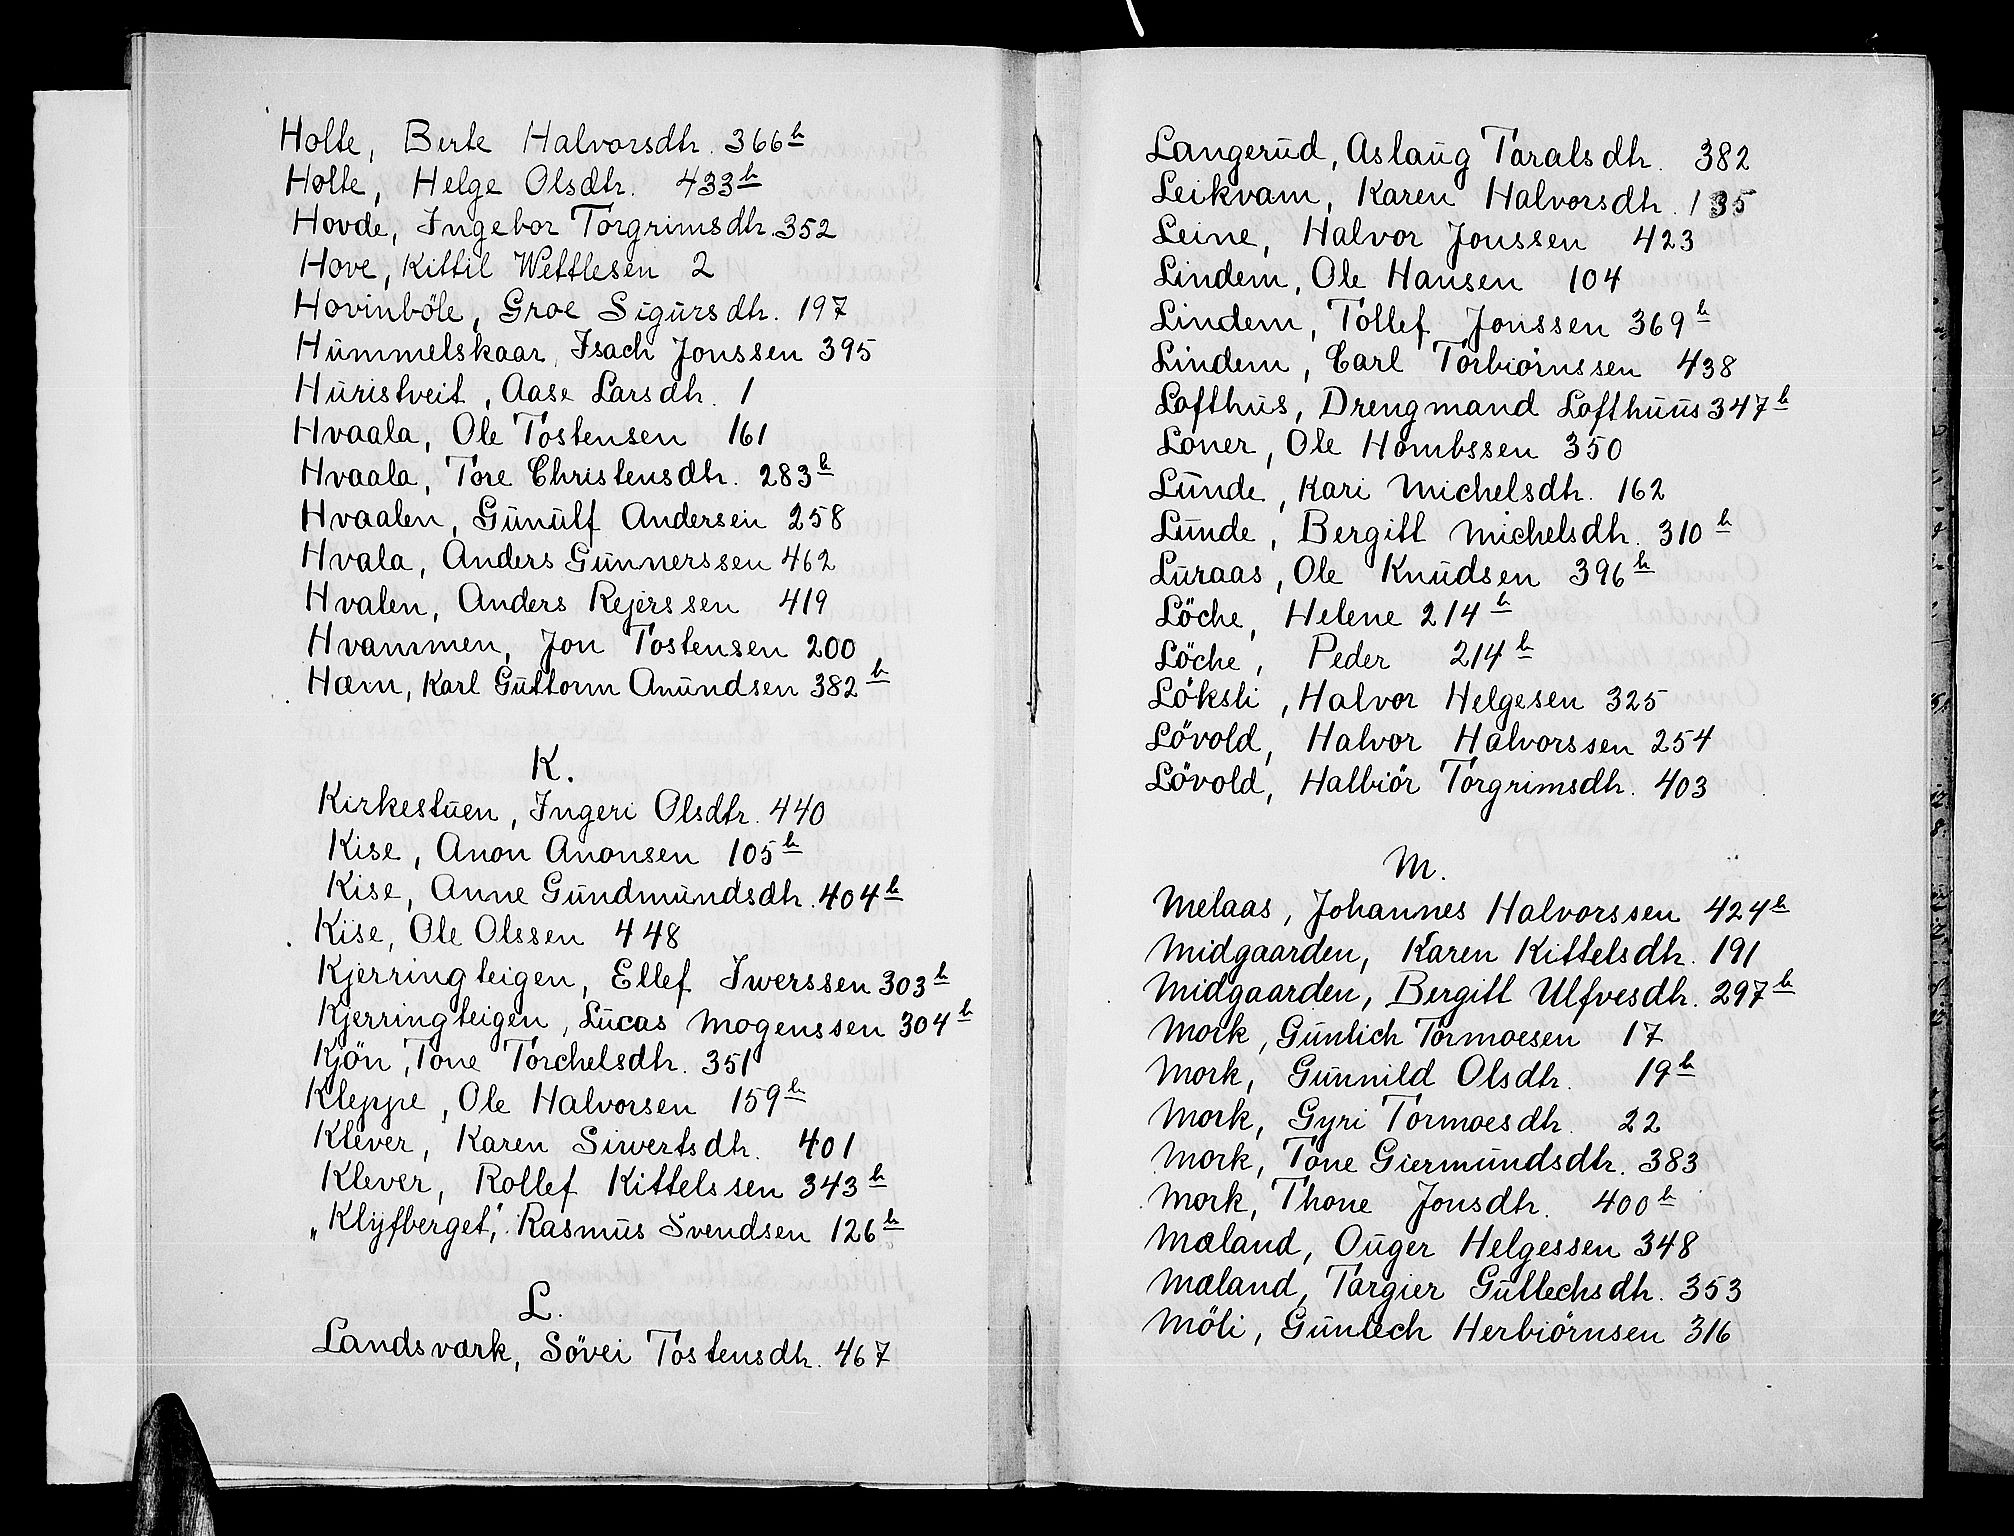 Holte, Berte Halvorsdtr. 366b
Holte, Helge Olsdtr. 433b
Hovde, Ingebor Torgrimsdtr. 352
Hove, Kittil Wettlesen 2
Hovinböle, Groe Sigursdtr. 197
Hummelskaar, Isach Jonssen 395
Huristveit, Aase Larsdtr. 1
Hvaala, Ole Tostensen 161
Hvaala, Tore Christensdtr. 283b
Hvaalen, Gunulf Andersen 258
Hvala, Anders Gunnerssen 462
Hvalen, Anders Rejerssen 419
Hvammen, Jon Tostensen 200
Hæm, Karl Guttorm Anundsen 382b
K.
Kirkestuen, Ingeri Olsdtr. 440
Kise, Anon Anonsen 105b
Kise, Anne Gundmundsdtr. 404b
Kise, Ole Olssen 448
Kjerringteigen, Ellef Iwerssen 303b
Kjerringteigen, Lucas Mogenssen 304b
Kjön, Tone Torchelsdtr. 351
Kleppe, Ole Halvorsen 159b
Klever, Karen Siwertsdtr. 401
Klever, Rollef Kittelssen 343b
„Klyfberget", Rasmus Svendsen 126b
L.
Landsværk, Sövei Tostensdtr. 467
Langerud, Aslaug Taralsdtr. 382
Leikvam, Karen Halvorsdtr. 135
Leine, Halvor Jonssen 423
Lindem, Ole Hansen 104
Lindem, Tollef Jonssen 369b
Lindem, Carl Torbiörnssen 438
Lofthus, Drengmand Lofthuus 347b
Loner, Ole Hombssen 350
Lunde, Kari Michelsdtr. 162
Lunde, Bergitl Michelsdtr. 310b
Luraas, Ole Knudsen 396b
Löche, Helene 214b
Löche, Peder 214b
Löksli, Halvor Helgesen 325
Lövold, Halvor Halvorssen 254
Lövold, Halbiör Torgrimsdtr. 403
M.
Melaas, Johannes Halvorssen 424b
Midgaarden, Karen Kittelsdtr. 191
Midgaarden, Bergitl Ulfvesdtr. 297b
Mork, Gunlich Tormoesen 17
Mork, Gunnild Olsdtr. 19b
Mork, Gyri Tormoesdtr. 22
Mork, Tone Giermundsdtr. 383
Mork, Thone Jonsdtr. 400b
Mæland, Ouger Helgessen 348
Mæland, Targier Gutlechsdtr. 353
Möli, Gunlech Herbiörnsen 316